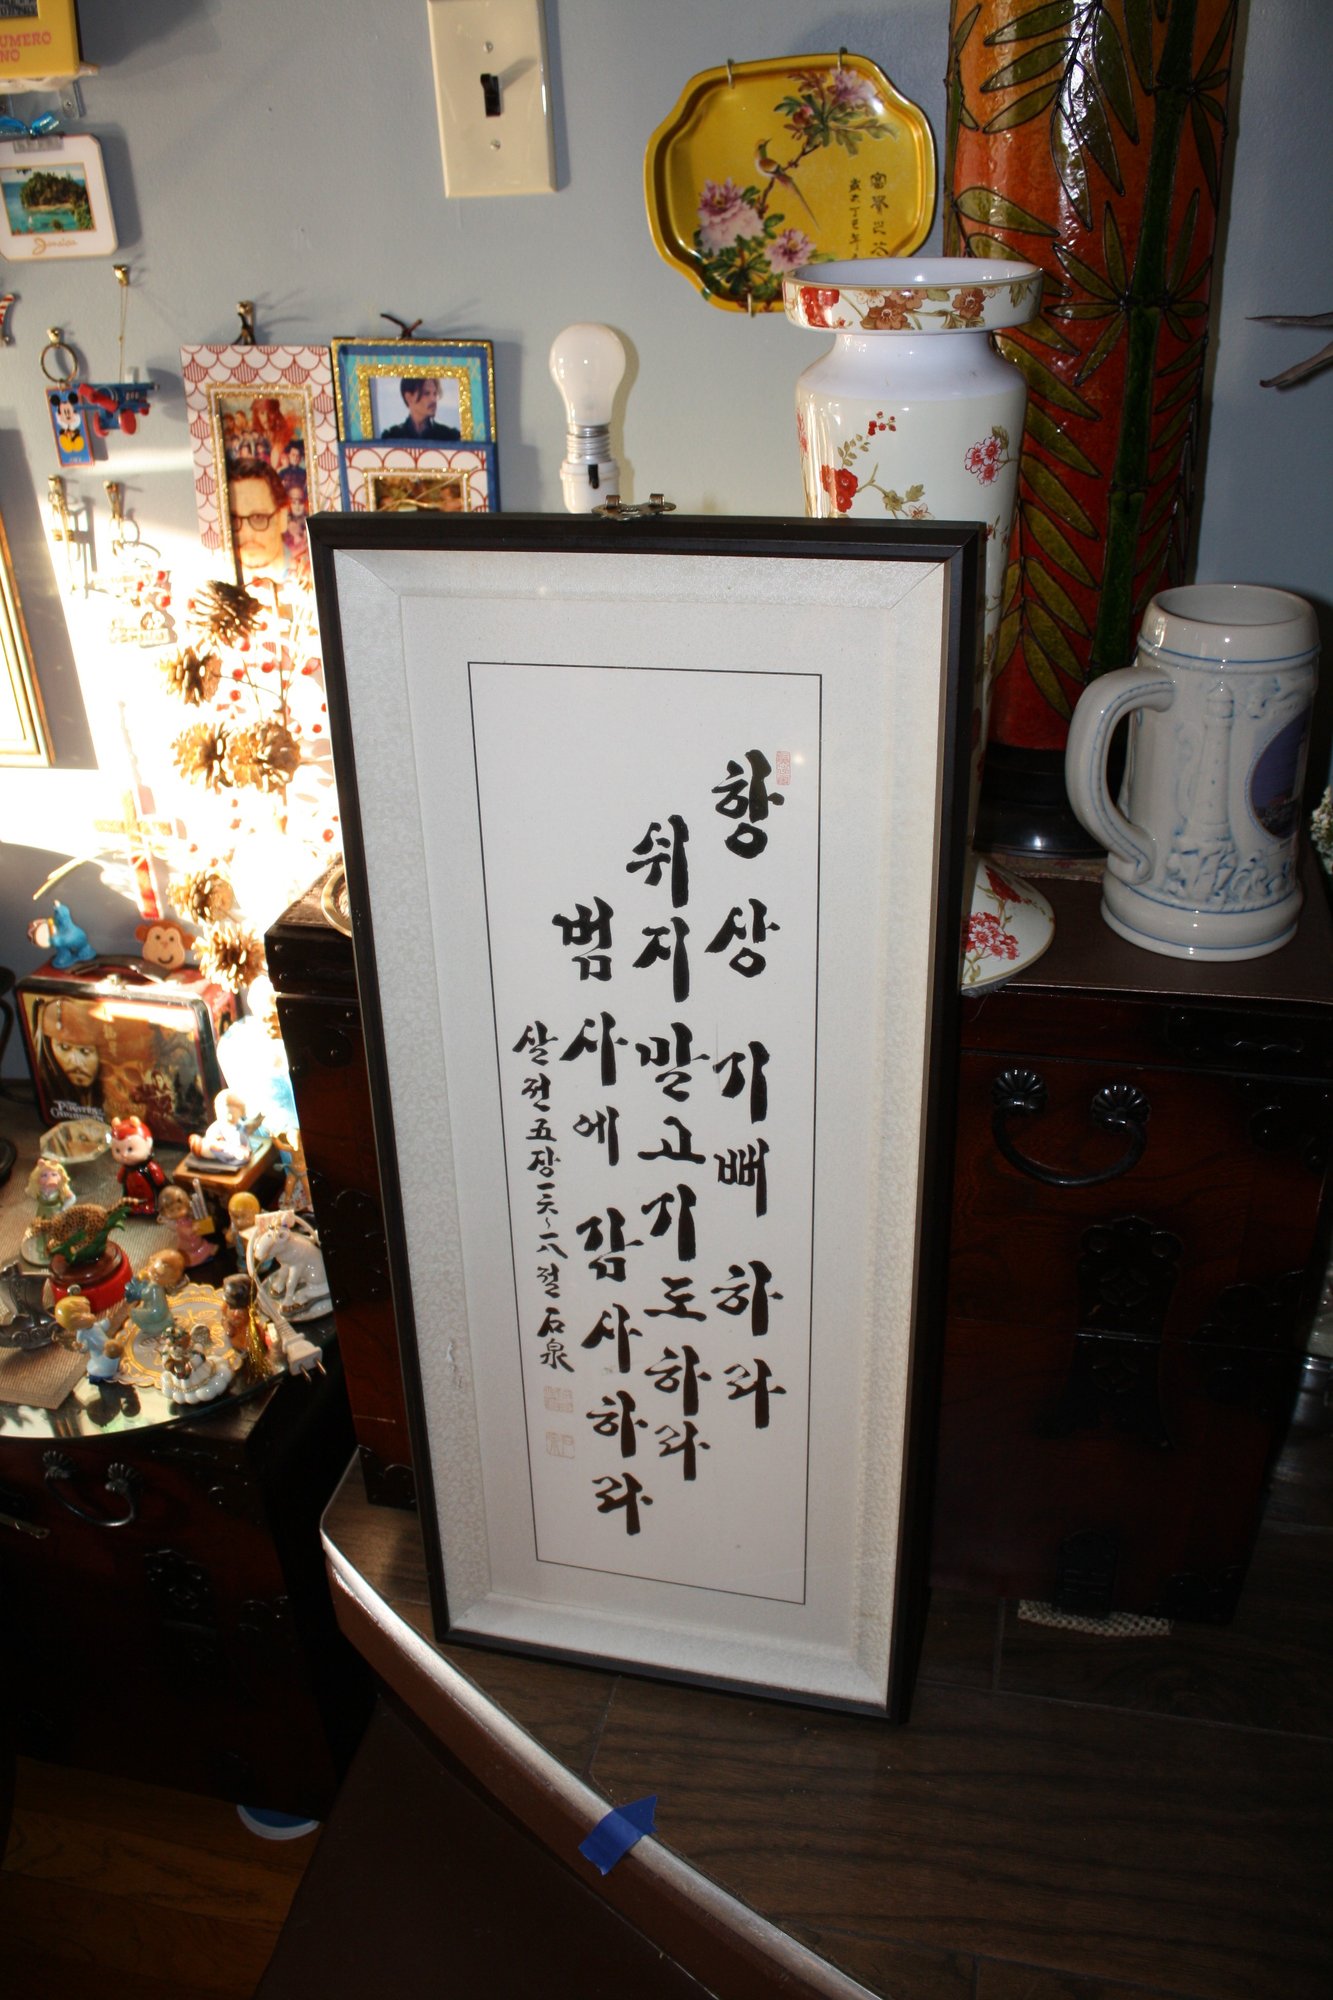 UMERO
NO
Jamaica
富貴之花
항상 기뻐하라
쉬지말고 기도하라
범사에 감사하라
살전五장一六~一八절 石泉
PIRATES
CARIBBEAN